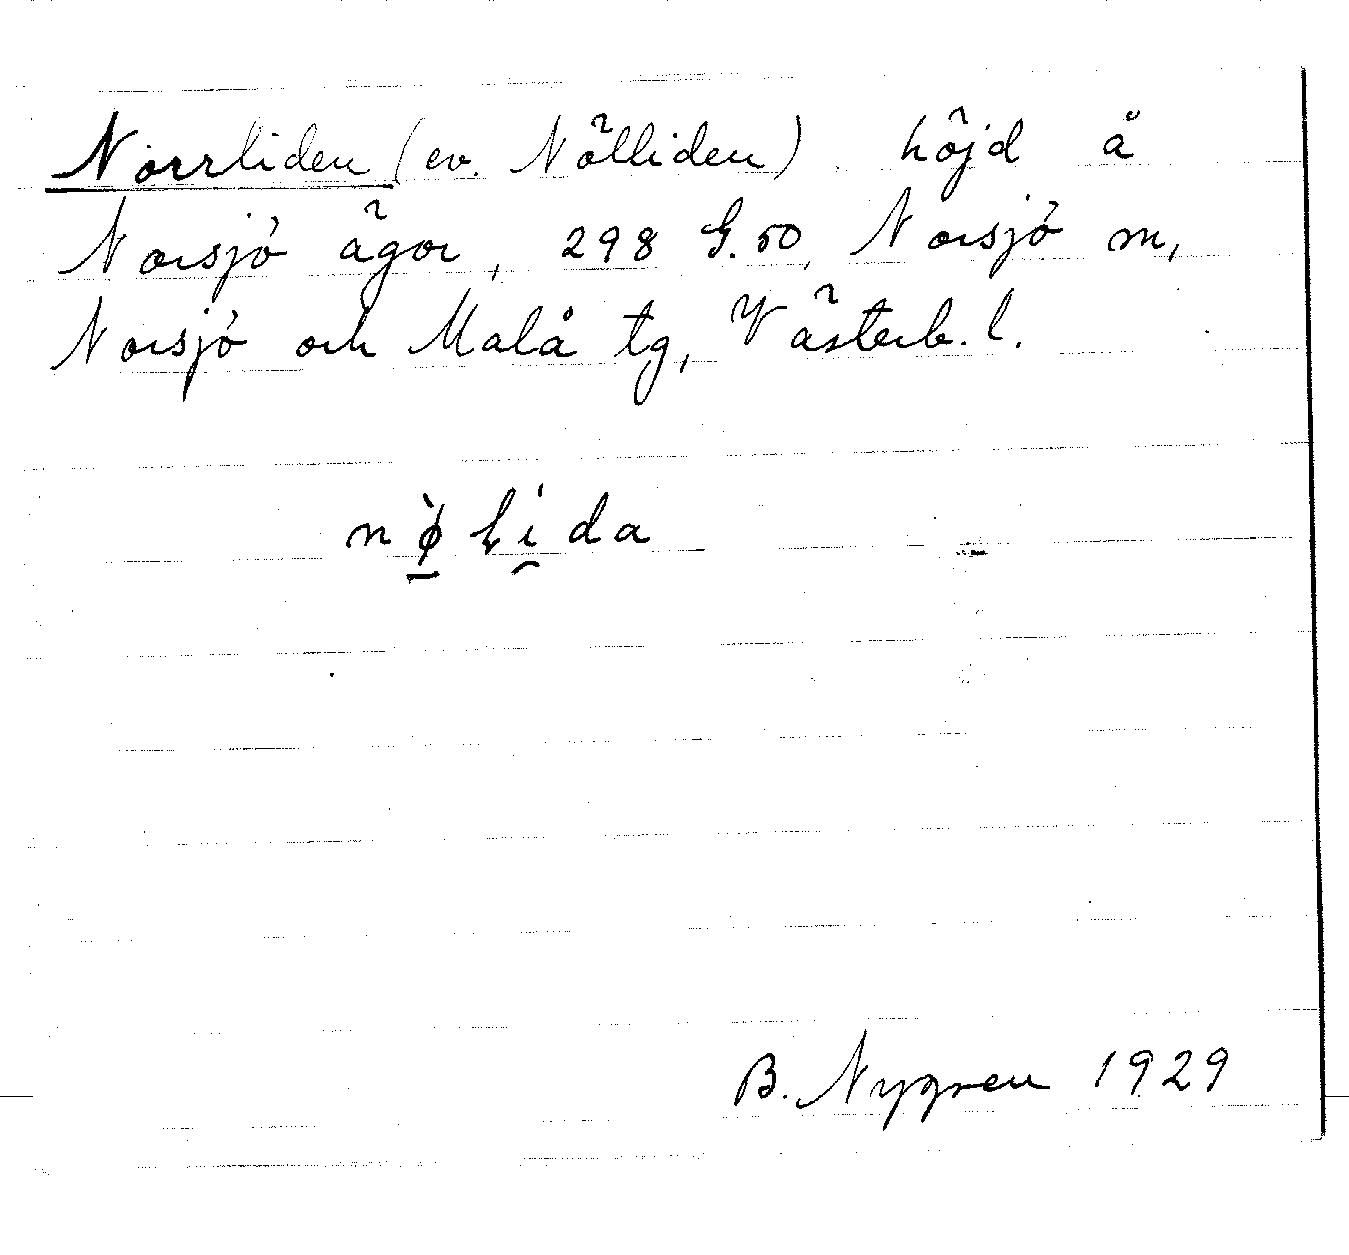 Norrliden (ev. Nölliden) höjd å
Norsjö ägor, 298 G. 50, Norsjö sn,
Norsjö och Malå tg, Västerb. l.
nø̱̀ lí̯da
B. Nygren 1929